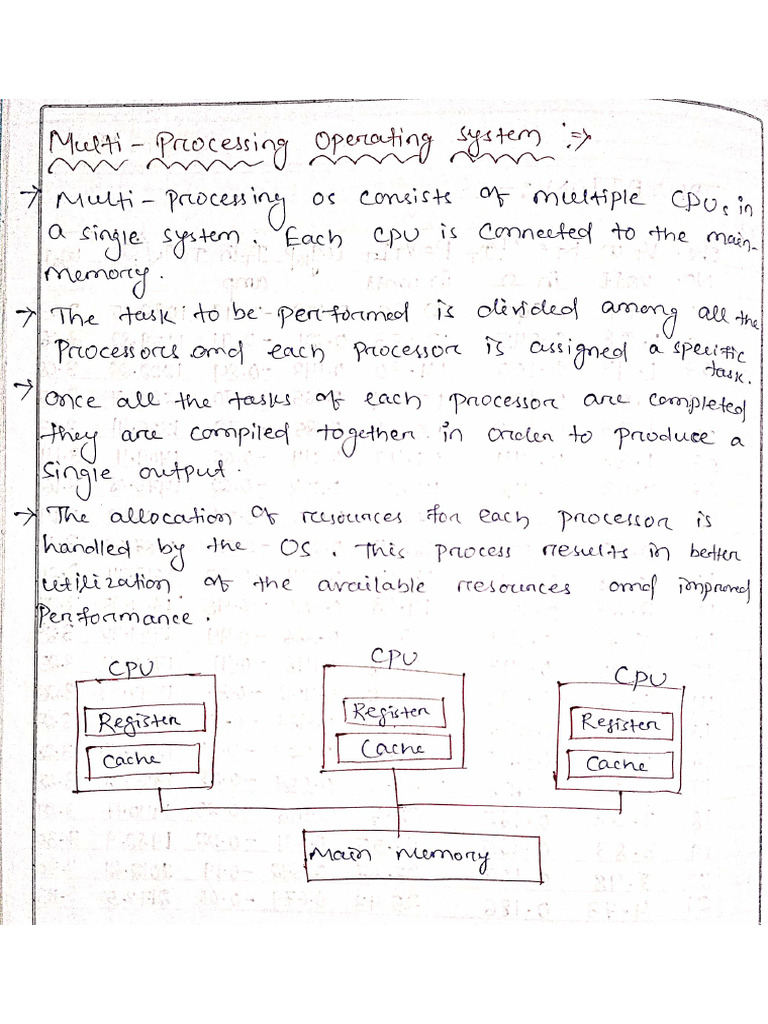 Multi-Processing Operating system :⇒
→ Multi-processing OS consists of multiple CPUs in
a single system. Each CPU is connected to the main-
memory.
→ The task to be performed is divided among all the
processors and each processor is assigned a specific
task.
→ Once all the tasks of each processor are completed
they are compiled together in order to produce a
single output.
→ The allocation of resources for each processor is
handled by the OS. This process results in better
utilization of the available resources and improved
Performance.
CPU CPU CPU
Register Register Register
Cache Cache Cache
Main memory